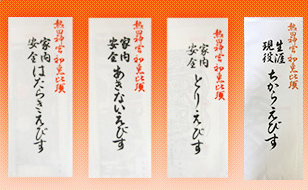 熱田神宮 初えびす
家内
安全
はたらきえびす
熱田神宮 初えびす
家内
安全
あきないえびす
熱田神宮 初えびす
家内
安全
とりえびす
熱田神宮 初えびす
生涯
現役
ちからえびす